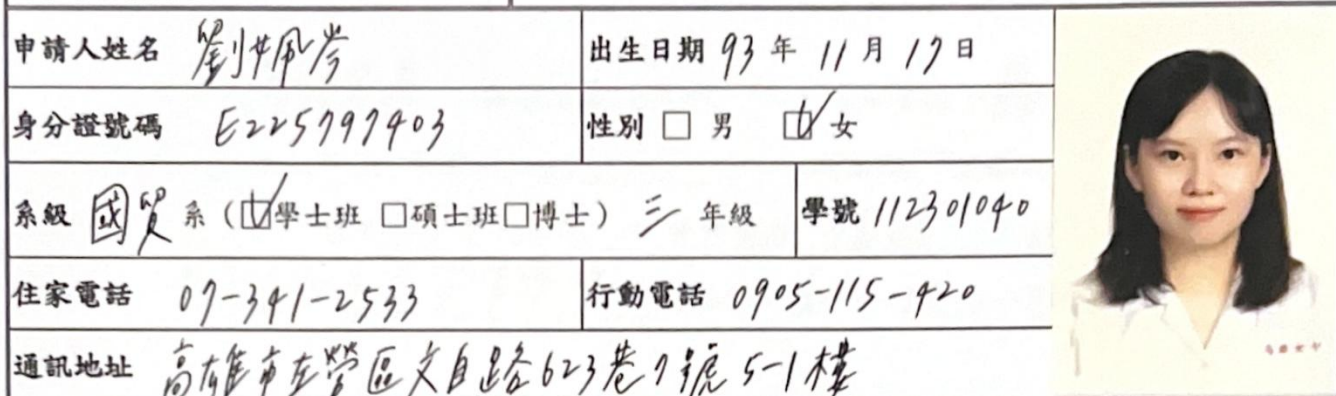 申請人姓名 劉姵岑 出生日期 93 年 11 月 17 日
身分證號碼 E225797403 性別 □ 男 ☑ 女
系級 國貿 系（☑學士班 □碩士班□博士）三 年級 學號 112301040
住家電話 07-341-2533 行動電話 0905-115-420
通訊地址 高雄市左營區文自路623巷7號5-1樓